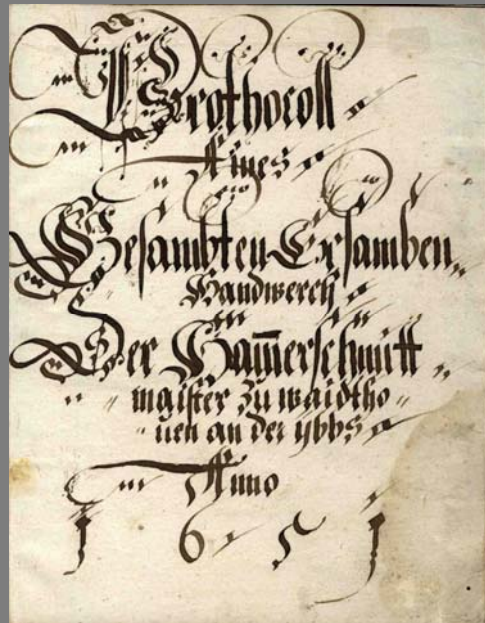 Prothocoll
Aines
Gesambten Ersamben
Handwerch
Der Ham̄erschmitt
maister zu waidtho
uen an der ybbs
Anno
1651